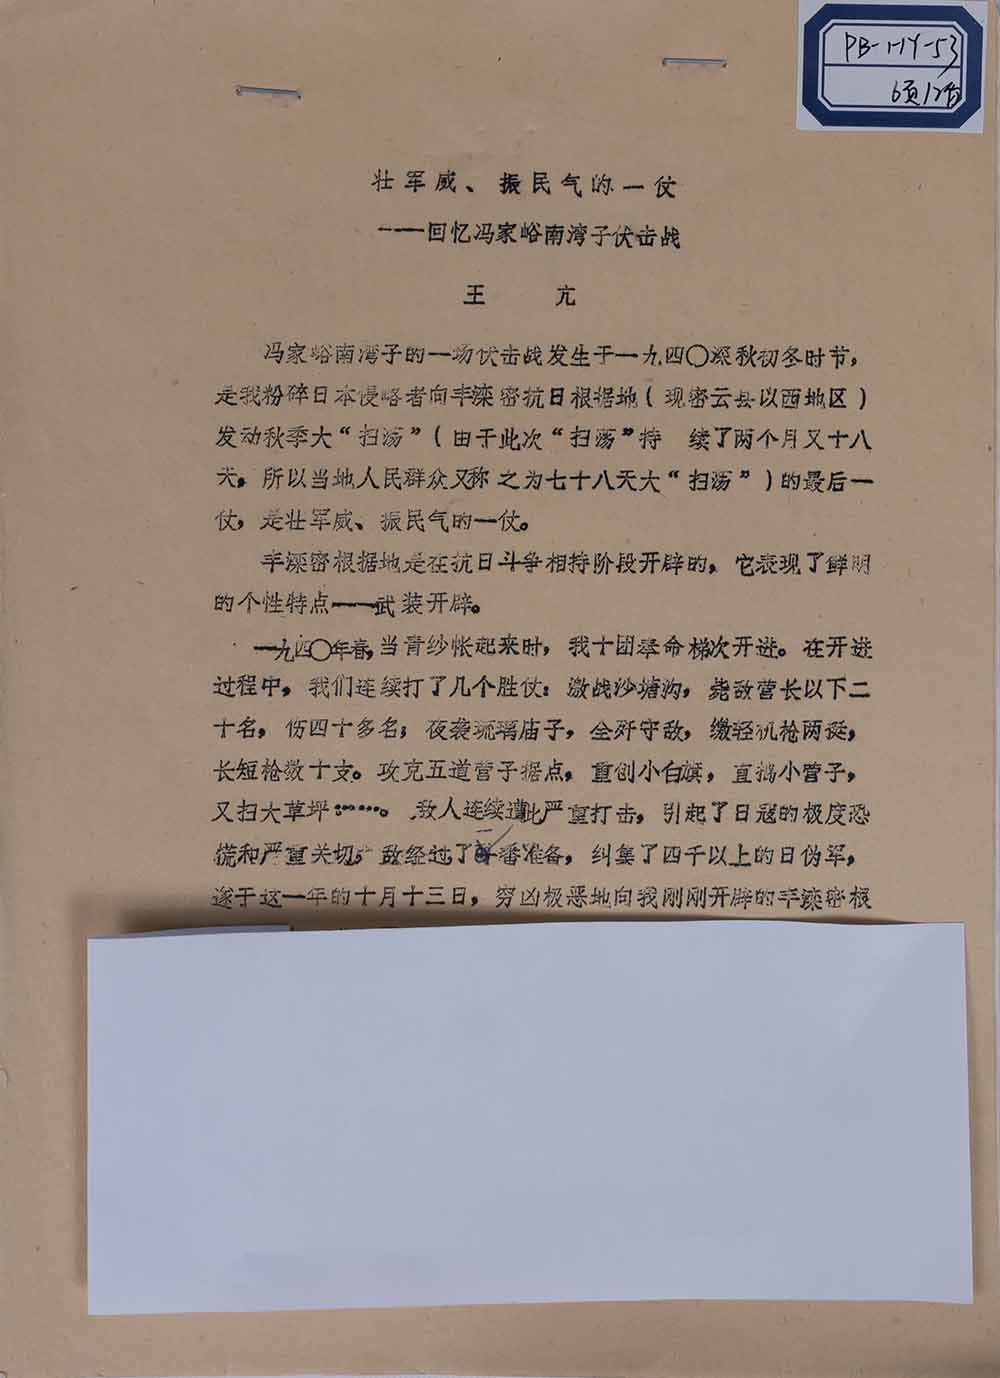 PB-1-1Y-53
6页12面
壮军威、振民气的一仗
——回忆冯家峪南湾子伏击战
王 亢
冯家峪南湾子的一场伏击战发生于一九四〇深秋初冬时节，
是我粉碎日本侵略者向丰滦密抗日根据地（现密云县以西地区）
发动秋季大“扫荡”（由于此次“扫荡”持 续了两个月又十八
天，所以当地人民群众又称之为七十八天大“扫荡”）的最后一
仗，是壮军威、振民气的一仗。
丰滦密根据地是在抗日斗争相持阶段开辟的，它表现了鲜明
的个性特点——武装开辟。
一九四〇年春，当青纱帐起来时，我十团奉命梯次开进。在开进
过程中，我们连续打了几个胜仗：激战沙塘沟，毙敌营长以下二
十名，伤四十多名；夜袭琉璃庙子，全歼守敌，缴轻机枪两挺，
长短枪数十支。攻克五道营子据点，重创小白旗，直捣小营子，
又扫大草坪……。敌人连续遭此严重打击，引起了日冦的极度恐
慌和严重关切，敌经过了一番准备，纠集了四千以上的日伪军，
遂于这一年的十月十三日，穷凶极恶地向我刚刚开辟的丰滦密根